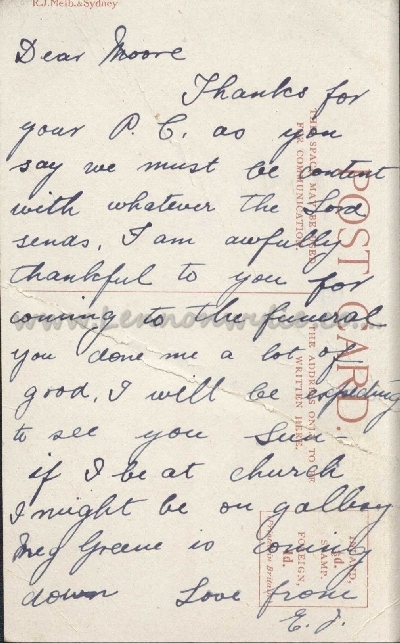 R.J. Melb. & Sydney
Dear Moore
Thanks for
your P. C. as you
say we must be content
with whatever the Lord
sends, I am awfully
thankful to you for
coming to the funeral
you done me a lot of
good, I will be expecting
to see you Sun-
if I be at church
I might be on
Meg Greene is coming
down Love from
E. J.
POST CARD.
THE SPACE MAY BE USED
FOR COMMUNICATION.
THE ADDRESS ONLY TO BE
WRITTEN HERE.
INLAND,
STAMP,
FOREIGN,
Printed in Britain